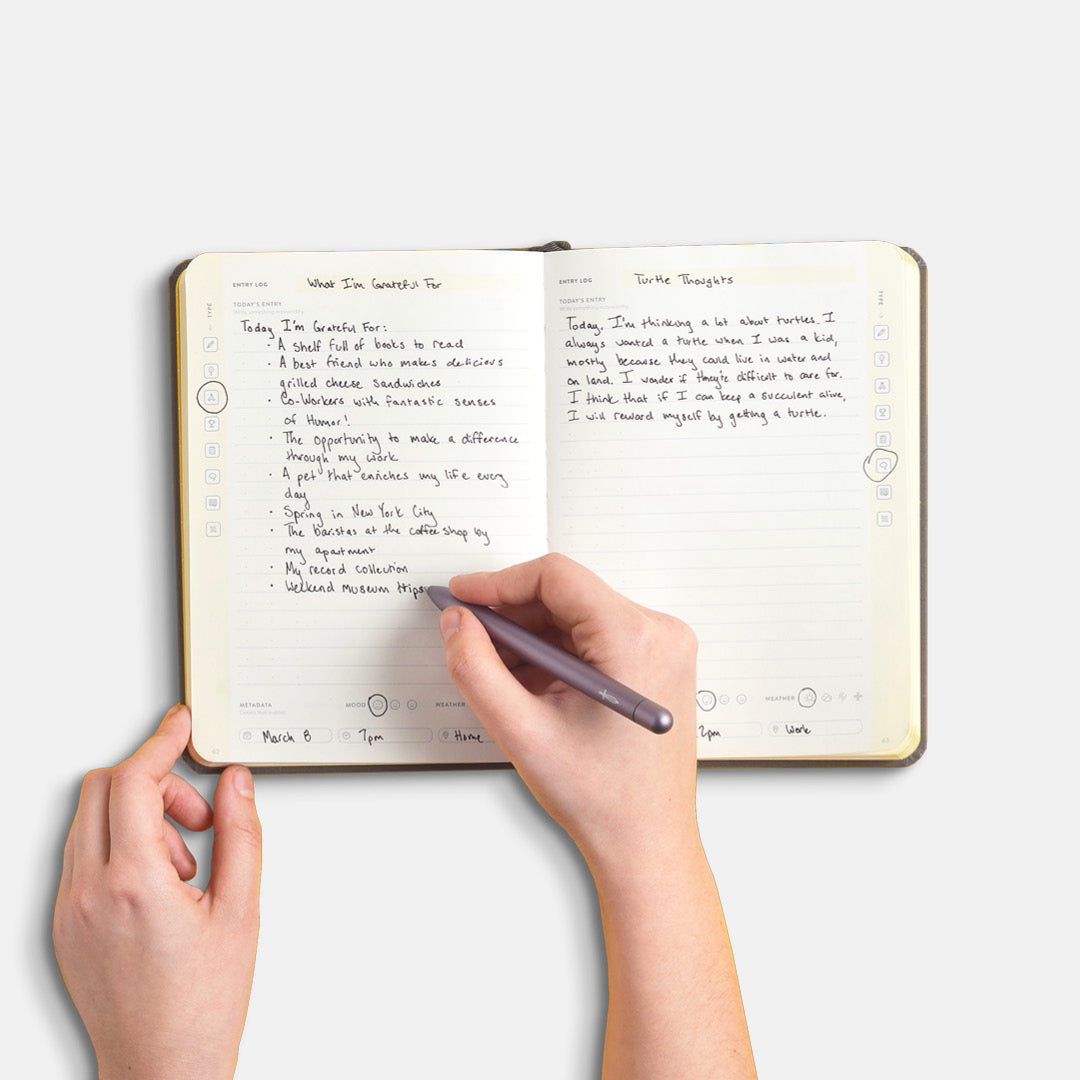 ENTRY LOG What I'm Grateful For
TYPE
TODAY'S ENTRY
Write something noteworthy.
Today I'm Grateful For:
· A shelf full of books to read
· A best friend who makes delicious
grilled cheese sandwiches
· Co-Workers with fantastic senses
of Humor!
· The opportunity to make a difference
through my work
· A pet that enriches my life every
day
· Spring in New York City
· The baristas at the coffee shop by
my apartment
· My record collection
· Weekend museum trips
METADATA MOOD WEATHER
March 8 7pm Home
62
ENTRY LOG Turtle Thoughts
TYPE
TODAY'S ENTRY
Write something noteworthy.
Today, I'm thinking a lot about turtles. I
always wanted a turtle when I was a kid,
mostly because they could live in water and
on land. I wonder if they're difficult to care for.
I think that if I can keep a succulent alive,
I will reward myself by getting a turtle.
WEATHER
2pm Work
63